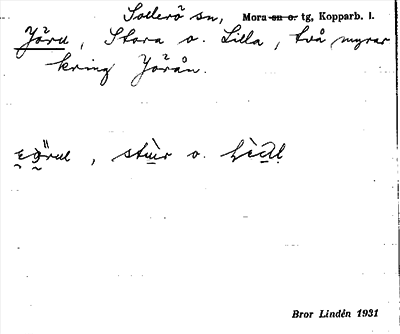 Sollerö sn, Mora sn o. tg, Kopparb. l.
Jöru, Stora o. Lilla, två myrar
kring Jörån.
o.
Bror Lindén 1931